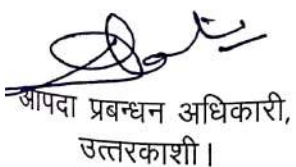 आपदा प्रबन्धन अधिकारी,
उत्तरकाशी।